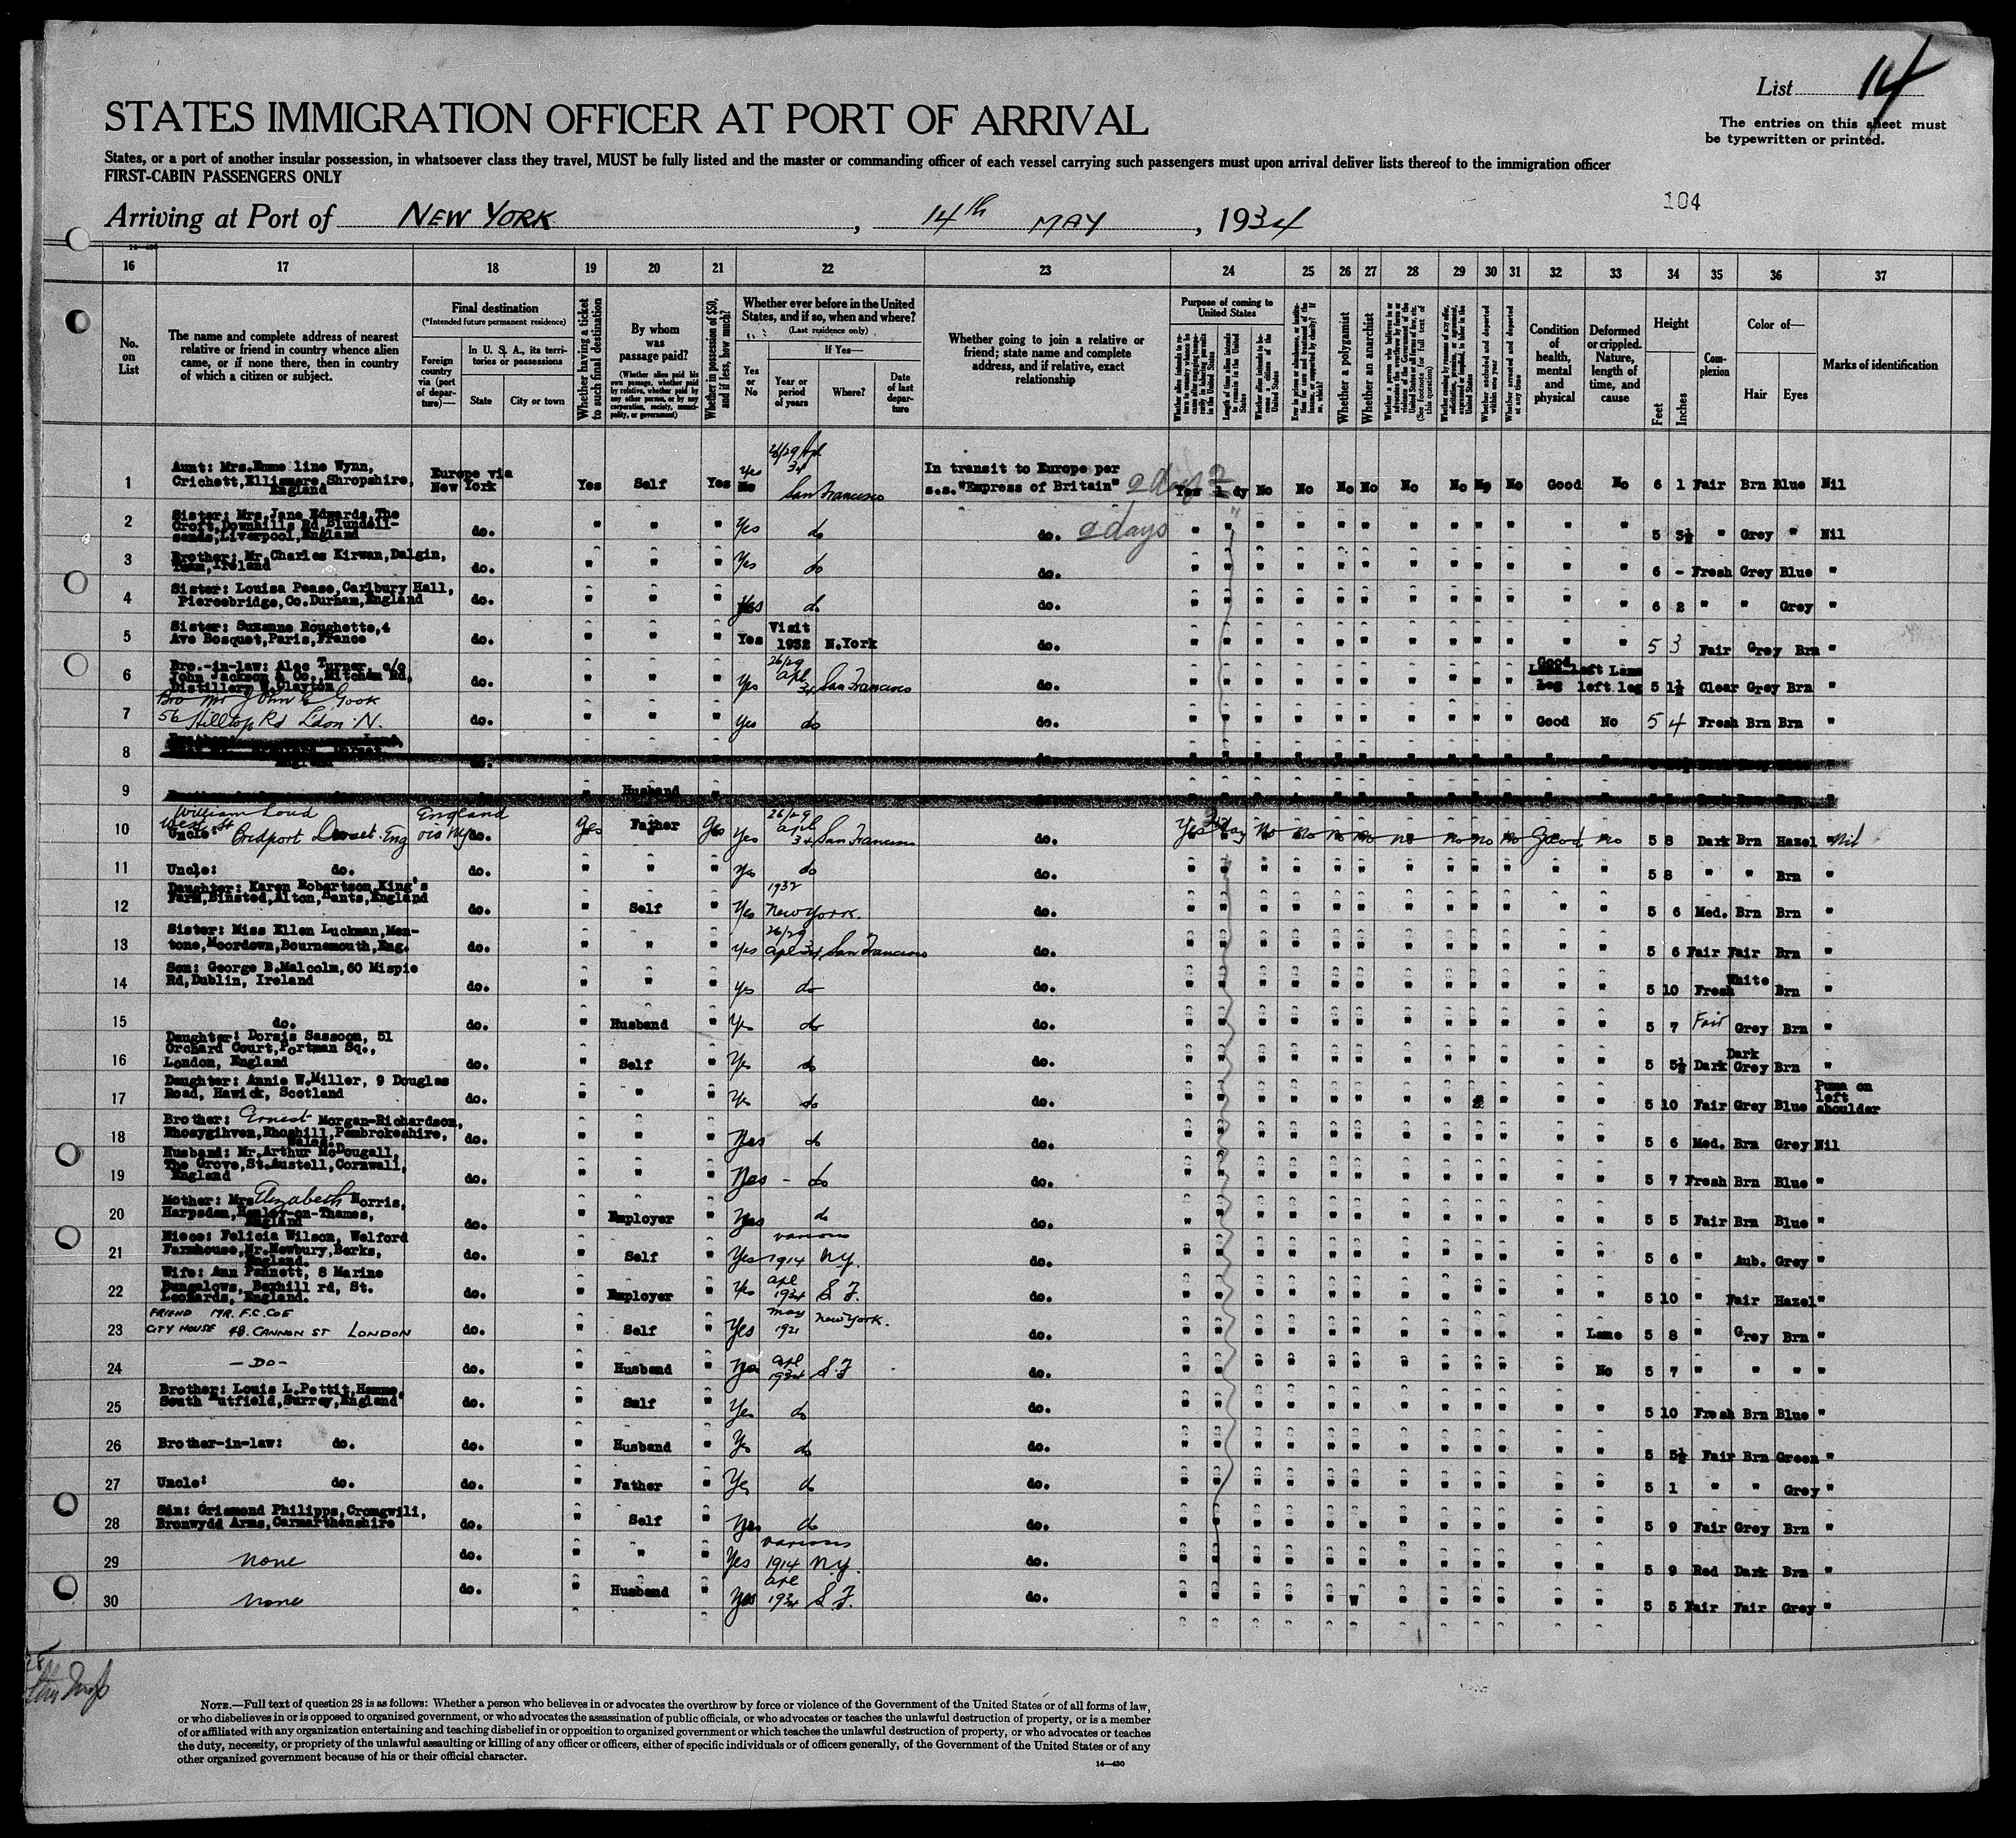 List 14
STATES IMMIGRATION OFFICER AT PORT OF ARRIVAL
The entries on this sheet must
be typewritten or printed.
States, or a port of another insular possession, in whatsoever class they travel, MUST be fully listed and the master or commanding officer of each vessel carrying such passengers must upon arrival deliver lists thereof to the immigration officer
FIRST-CABIN PASSENGERS ONLY
104
Arriving at Port of NEW YORK, 14th MAY, 1934
16 17 18 19 20 21 22 23 24 25 26 27 28 29 30 31 32 33 34 35 36 37
No. on List
The name and complete address of nearest relative or friend in country whence alien came, or if none there, then in country of which a citizen or subject.
Final destination
(*Intended future permanent residence)
Foreign country via (port of departure)—
In U. S. A., its territories or possessions
State City or town
Whether having a ticket to such final destination
By whom was passage paid?
(Whether alien paid his own passage, whether paid by relative, whether paid by any other person, or by any corporation, society, municipality, or government)
Whether in possession of $50, and if less, how much?
Whether ever before in the United States, and if so, when and where?
(Last residence only)
Yes or No
If Yes—
Year or period of years
Where?
Date of last departure
Whether going to join a relative or friend; state name and complete address, and if relative, exact relationship
Purpose of coming to United States
Whether a polygamist
Whether an anarchist
Condition of health, mental and physical
Deformed or crippled. Nature, length of time, and cause
Height
Feet Inches
Complexion
Color of—
Hair Eyes
Marks of identification
1 Aunt: Mrs.Emmeline Wynn, Crichett,Ellismere,Shropshire, England Europe via New York Yes Self Yes Yes No 26/29 Apl 34 San Francisco In transit to Europe per s.s."Express of Britain" 2 days Yes dy No No No No No No No No Good No 6 1 Fair Brn Blue Nil
2 Sister: Mrs.Jane Edwards,The Croft,Downhills Rd,Blundellsands,Liverpool,England do. " " " Yes do do. 2 days 5 3½ " Grey " Nil
3 Brother: Mr.Charles Kirwan,Dalgin, Tuam,Ireland do. " " " Yes do do. 6 - Fresh Grey Blue "
4 Sister: Louisa Pease,Carlbury Hall, Piercebridge,Co.Durham,England do. " " " Yes do do. 6 2 " " Grey "
5 Sister: Suzanne Roughette,4 Ave Bosquet,Paris,France do. " " " Yes Visit 1932 N.York do. 5 3 Fair Grey Brn "
6 Bro.-in-law: Alec Turner, c/o John Jackson & Co., Mitcham Rd, Distillery W.Clayton do. " " " Yes 26/29 Apl 34 San Francisco do. Good left leg 5 1½ Clear Grey Brn "
7 Bro Mr John E Gook 56 Hilltop Rd Ldon N. do. " " " Yes do do. Good No 5 4 Fresh Brn Brn "
8
9 Husband
10 William Loud West St Uncle Bridport Dorset. Eng England via NY do. Yes Father Yes Yes 26/29 apl 34 San Francisco do. Yes day No No No No No No No No Good No 5 8 Dark Brn Hazel Nil
11 Uncle: do. do. " " " Yes do do. 5 8 " " Brn "
12 Daughter: Karen Robertson,King's Farm,Binsted,Alton,Hants,England do. " Self " Yes 1932 New York. do. 5 6 Med. Brn Brn "
13 Sister: Miss Ellen Luckman,Mentone,Moordown,Bournemouth,Eng. do. " " " Yes 26/29 Apl 34 San Francisco do. 5 6 Fair Fair Brn "
14 Son: George B.Malcolm,60 Mispie Rd,Dublin, Ireland do. " " " Yes do do. 5 10 Fresh White Brn "
15 do. do. " Husband " Yes do do. 5 7 Fair Grey Brn "
16 Daughter: Dorsis Sassoon, 51 Orchard Court,Portman Sq., London, England do. " Self " Yes do do. 5 5½ Dark Dark Grey Brn "
17 Daughter: Annie W.Miller, 9 Douglas Road, Hawick, Scotland do. " " " Yes do do. 5 10 Fair Grey Blue Puma on left shoulder
18 Brother: Ernest Morgan-Richardson, Rhosygihven,Rhoshill,Pembrokeshire, Wales. do. " " " Yes do do. 5 6 Med. Brn Grey Nil
19 Husband: Mr.Arthur McDougall, The Grove,St.Austell,Cornwall, England do. " " " Yes - do do. 5 7 Fresh Brn Blue "
20 Mother: Mrs Elizabeth Norris, Harpsden,Henley-on-Thames, England do. " Employer " Yes do do. 5 5 Fair Brn Blue "
21 Niece: Felicia Wilson, Welford Farmhouse,Nr.Newbury,Berks, England. do. " Self " Yes various 1914 N.Y. do. 5 6 " Aub. Grey "
22 Wife: Ann Pannett, 8 Marine Bungalows, Bexhill rd, St. Leonards, England. do. " Employer " Yes apl 1934 S F. do. 5 10 " Fair Hazel "
23 FRIEND MR. F.C. COE CITY HOUSE 48. CANNON ST LONDON do. " Self " Yes May 1921 New York. do. " Lame 5 8 " Grey Brn "
24 — DO — do. " Husband " Yes apl 1934 S.F do. No 5 7 " " " "
25 Brother: Louis L.Pettit,Hamme, South Nutfield,Surrey,England do. " Self " Yes do do. 5 10 Fresh Brn Blue "
26 Brother-in-law: do. do. " Husband " Yes do do. 5 5½ Fair Brn Green "
27 Uncle: do. do. " Father " Yes do do. 5 1 " " Grey "
28 Son: Grismond Philipps,Cromgwili, Bronwydd Arms,Carmarthenshire do. " Self " Yes do do. 5 9 Fair Grey Brn "
29 none do. " " " Yes various 1914 N.Y. do. 5 9 Red Dark Brn "
30 none do. " Husband " Yes apl 1934 S F. do. 5 5 Fair Fair Grey "
NOTE.—Full text of question 28 is as follows: Whether a person who believes in or advocates the overthrow by force or violence of the Government of the United States or of all forms of law,
or who disbelieves in or is opposed to organized government, or who advocates the assassination of public officials, or who advocates or teaches the unlawful destruction of property, or is a member
of or affiliated with any organization entertaining and teaching disbelief in or opposition to organized government or which teaches the unlawful destruction of property, or who advocates or teaches
the duty, necessity, or propriety of the unlawful assaulting or killing of any officer or officers, either of specific individuals or of officers generally, of the Government of the United States or of any
other organized government because of his or their official character.
14—430